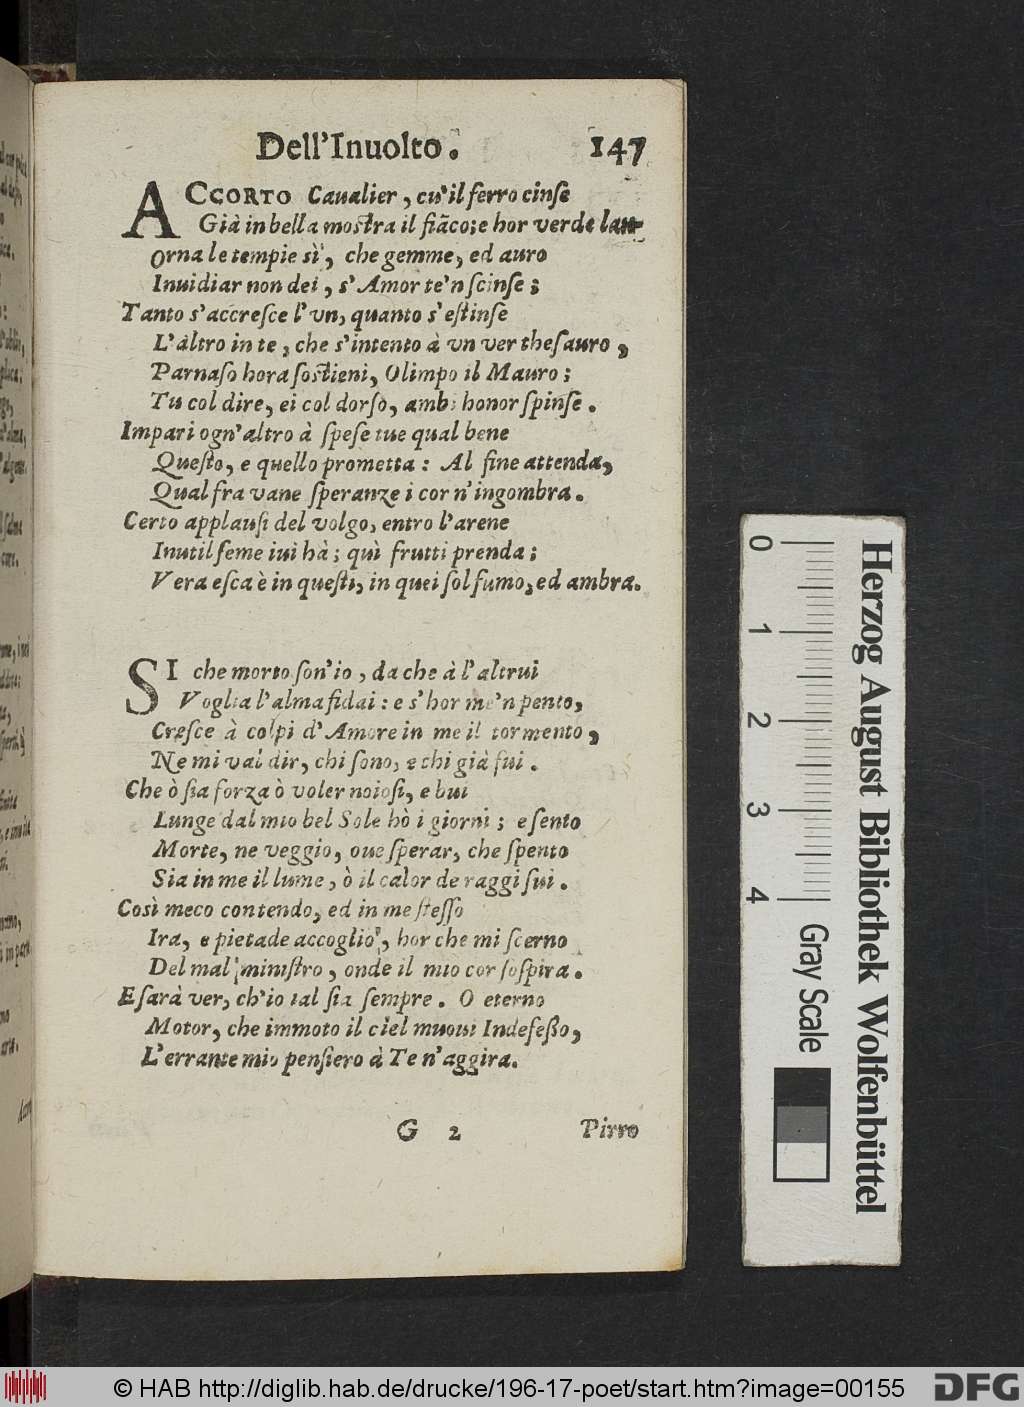 Dell'Inuolto. 147
ACCORTO Caualier, cu'il ferro cinſe
Già in bella mostra il fiãco; e hor verde lau-
Orna le tempie sì, che gemme, ed auro
Inuidiar non dei, s'Amor te'n ſcinſe;
Tanto s'accreſce l'vn, quanto s'eſtinſe
L'àltro in te, che s'intento à vn ver theſauro,
Parnaſo hora ſostieni, Olimpo il Mauro;
Tu col dire, ei col dorſo, ambi honor ſpinſe.
Impari ogn'altro à ſpeſe tue qual bene
Queſto, e quello prometta: Al fine attenda,
Qual fra vane ſperanze i cor n'ingombra.
Certo applauſi del volgo, entro l'arene
Inutil ſeme iui hà; quì frutti prenda;
Vera eſca è in queſti, in quei ſol fumo, ed ambra.
SI che morto ſon'io, da che à l'altrui
Voglia l'alma fidai: e s'hor me'n pento,
Creſce à colpi d'Amore in me il tormento,
Ne mi val dir, chi ſono, e chi già fui.
Che ò ſia forza ò voler noioſi, e bui
Lunge dal mio bel Sole hò i giorni; e ſento
Morte, ne veggio, oue ſperar, che ſpento
Sia in me il lume, ò il calor de raggi ſui.
Così meco contendo, ed in me ſteſſo
Ira, e pietade accoglio, hor che mi ſcerno
Del mal miniſtro, onde il mio cor ſoſpira.
E ſarà ver, ch'io tal ſia ſempre. O eterno
Motor, che immoto il ciel muoui Indefeßo,
L'errante mio penſiero à Te n'aggira.
G 2 Pirro
0 1 2 3 4
Gray Scale
Herzog August Bibliothek Wolfenbüttel
© HAB http://diglib.hab.de/drucke/196-17-poet/start.htm?image=00155
DFG